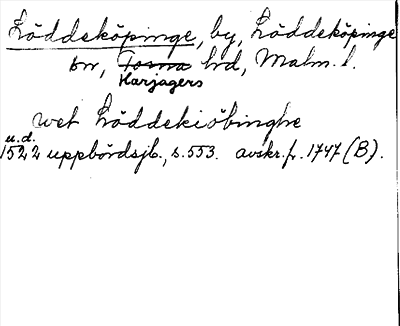 Löddeköpinge, by, Löddeköpinge
sn, Torna hrd, Malm. l.
Harjagers
wet Löddekiöbinghe
u.d.
1522 uppbördsjb., s. 553. avskr. fr. 1747 (B).